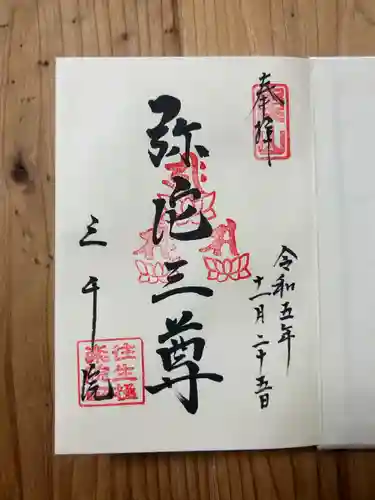 奉拝
令和五年
十一月二十五日
弥陀三尊
三千院
往生極
楽院